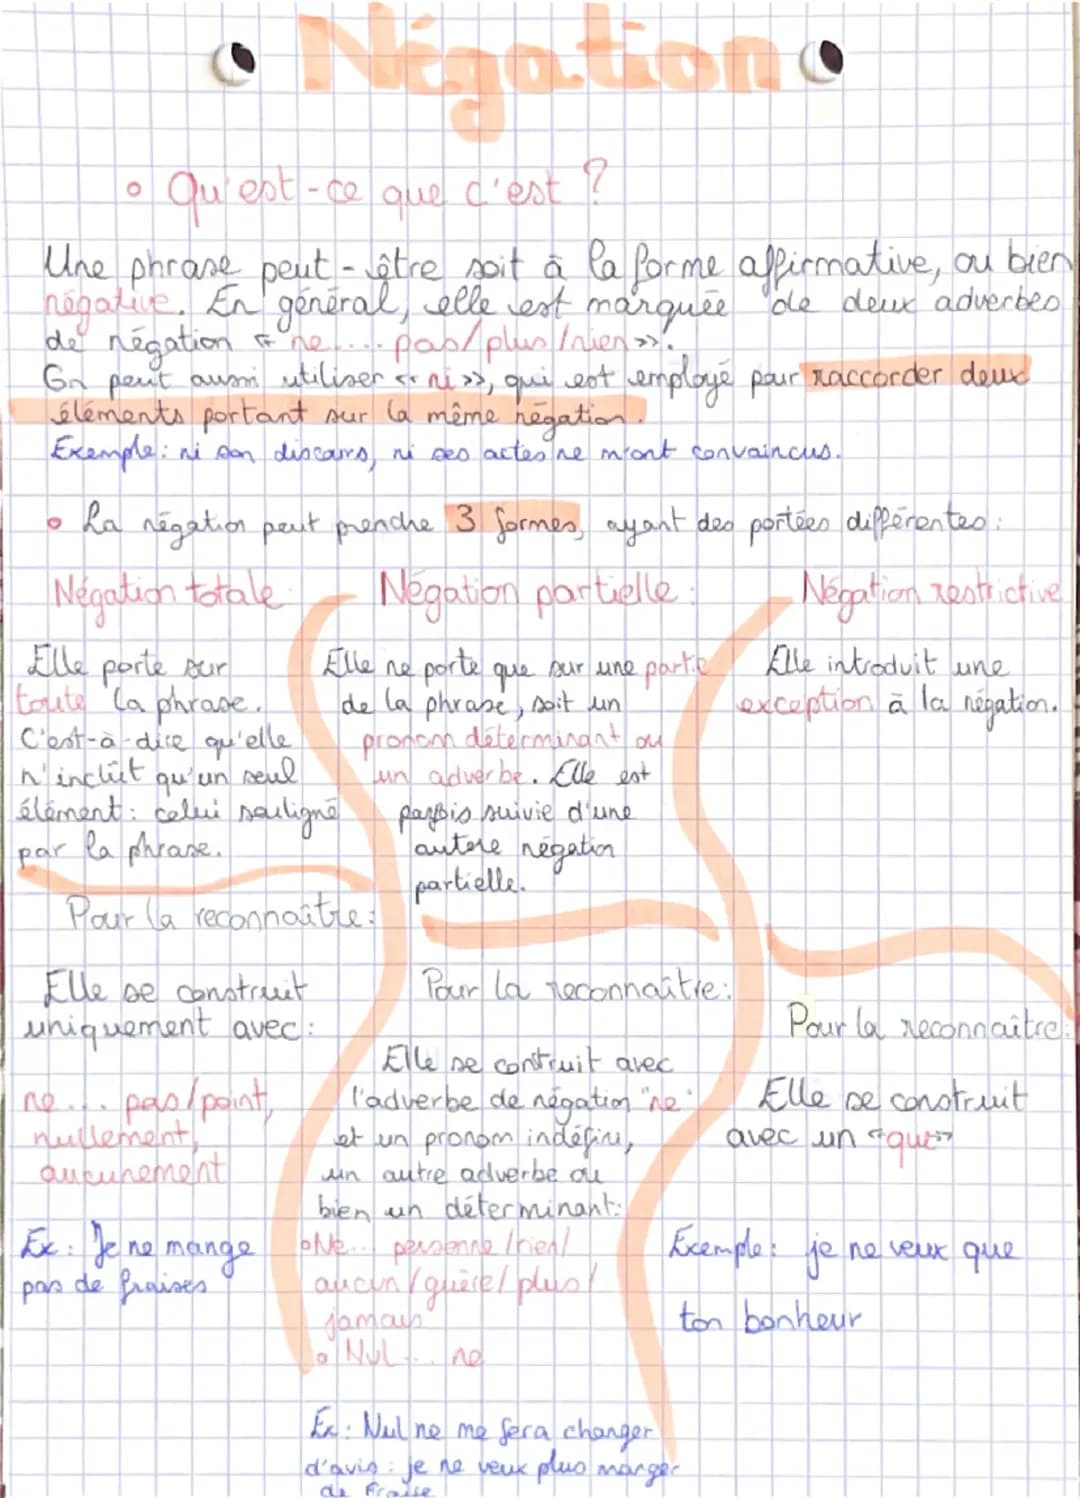 Négation
• Qu'est-ce que c'est ?
Une phrase peut-être soit à la forme affirmative, ou bien
négative. En général, elle est marquée de deux adverbes
de négation « ne.... pas/plus/rien ».
On peut aussi utiliser « ni », qui est employé pour raccorder deux
éléments portant sur la même négation.
Exemple : ni son discours, ni ses actes ne m'ont convaincus.
• La négation peut prendre 3 formes, ayant des portées différentes :
Négation totale
Elle porte sur
toute la phrase.
C'est-à-dire qu'elle
n'inclût qu'un seul
élément : celui souligné
par la phrase.
Pour la reconnaître :
Elle se construit
uniquement avec :
ne... pas/point,
nullement,
aucunement
Ex : Je ne mange
pas de fraises
Négation partielle :
Elle ne porte que sur une partie
de la phrase, soit un
pronom déterminant ou
un adverbe. Elle est
parfois suivie d'une
autere négation
partielle.
Pour la reconnaître :
Elle se contruit avec
l'adverbe de négation "ne"
et un pronom indéfini,
un autre adverbe ou
bien un déterminant :
• Ne... personne/rien/
aucun/guère/plus/
jamais
• Nul... ne
Ex : Nul ne me fera changer
d'avis : je ne veux plus manger
de fraise
Négation restrictive
Elle introduit une
exception à la négation.
Pour la reconnaître :
Elle se construit
avec un « que »
Exemple : je ne veux que
ton bonheur